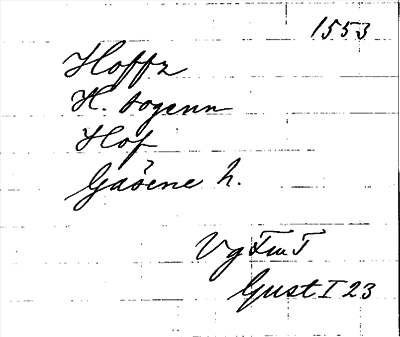 1553
Hoffz
H. sogenn
Hof
Gasene h.
Vg FmT
Gust I 23